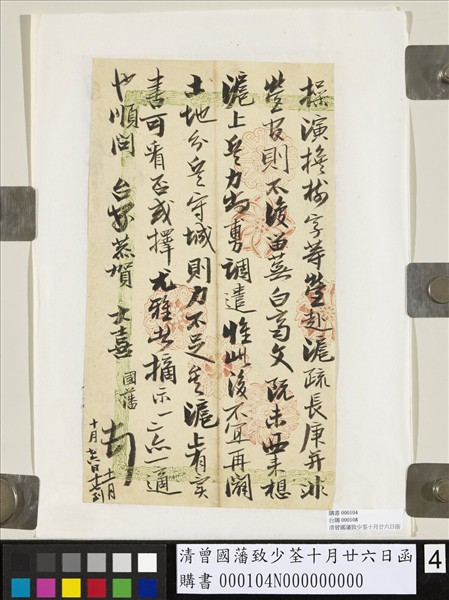 操演樹字等營赴滬疏長庚並非
營官則不復留蕪白齊文既未西來想
滬上兵力尚敷調遣惟此後不宜再闢
土地分兵守城則力不足矣滬上有實
書可看否或擇尤雅者摘示一二亦一適
也順問 台安恭賀 大喜 國藩 頓
十月廿六日
購書 000104
台購 000108
清曾國藩致少荃十月廿六日函
清曾國藩致少荃十月廿六日函
購書 000104N000000000
4